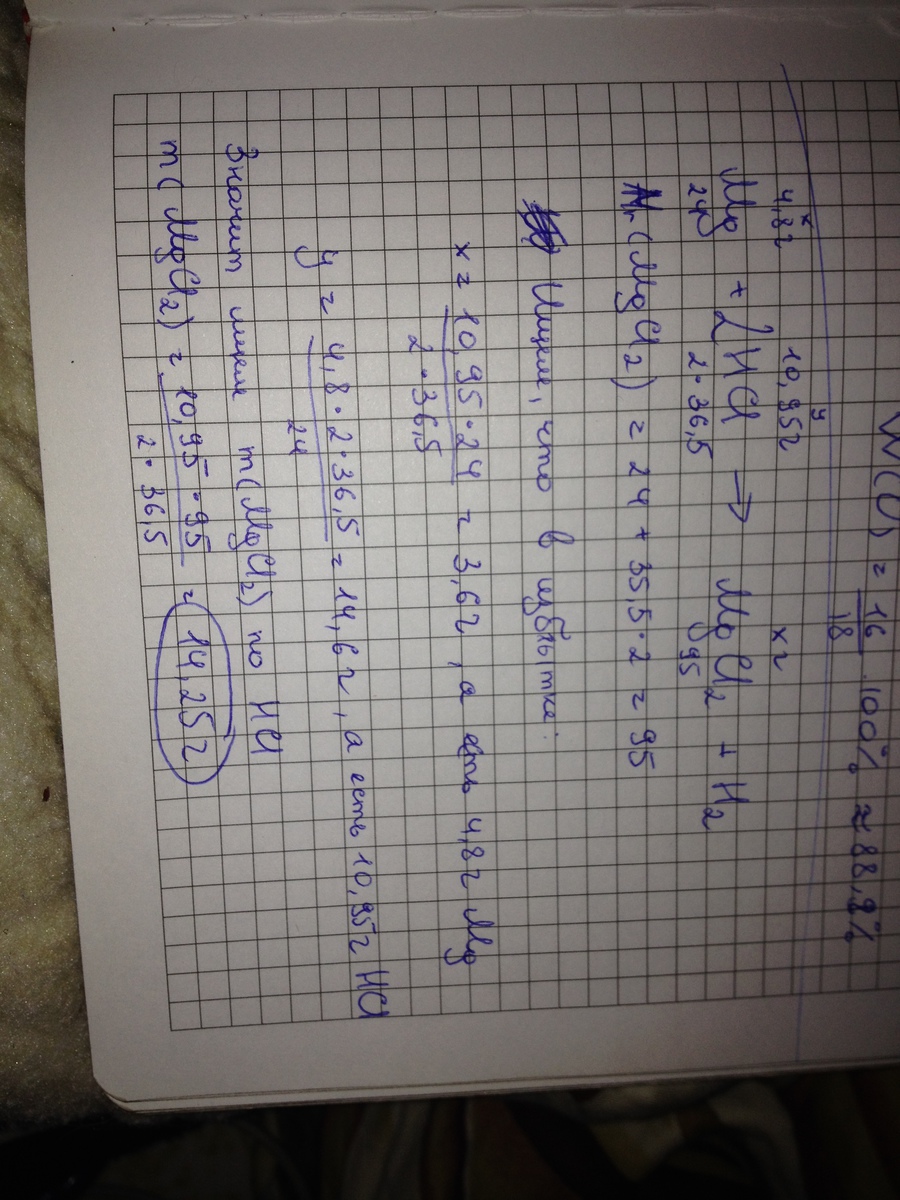 W(O) = 16/18 · 100% ≈ 88,9%
x y
4,8г 10,95г xг
Mg + 2HCl → MgCl2 + H2
24 2·36,5 95
Mr(MgCl2) = 24 + 35,5·2 = 95
Ищем, что в избытке:
x = 10,95·24 / 2·36,5 = 3,6г, а есть 4,8г Mg
y = 4,8·2·36,5 / 24 = 14,6г, а есть 10,95г HCl
Значит ищем m(MgCl2) по HCl
m(MgCl2) = 10,95·95 / 2·36,5 = 14,25г